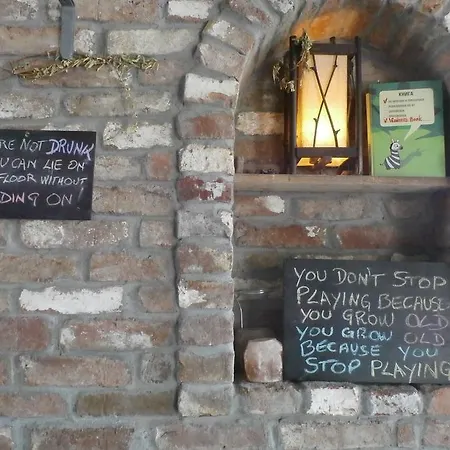 RE NOT DRUNK
OU CAN LIE ON
FLOOR WITHOUT
DING ON!
КНИГА
YOU DON'T STOP
PLAYING BECAUSE
YOU GROW OLD
YOU GROW OLD
BECAUSE YOU
STOP PLAYING